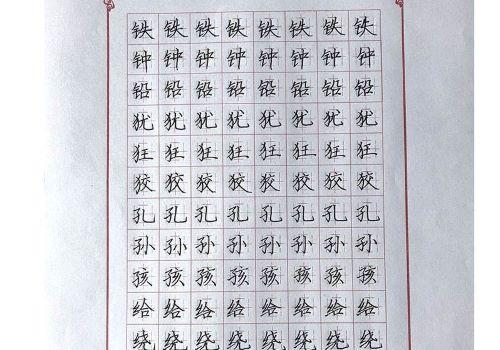 铁铁铁铁铁铁铁铁
钟钟钟钟钟钟钟钟
铅铅铅铅铅铅铅铅
犹犹犹犹犹犹犹犹
狂狂狂狂狂狂狂狂
狡狡狡狡狡狡狡狡
孔孔孔孔孔孔孔孔
孙孙孙孙孙孙孙孙
孩孩孩孩孩孩孩孩
给给给给给给给给
绕绕绕绕绕绕绕绕